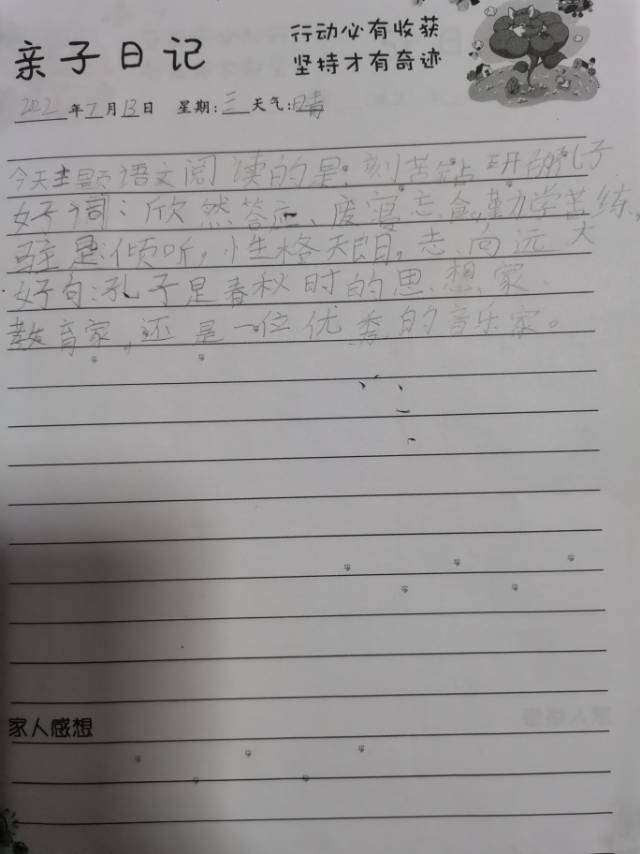 亲子日记
行动必有收获
坚持才有奇迹
2021年7月13日 星期:三 天气:晴
今天主题语文阅读的是:刻苦钻研的孔子
好词:欣然答应、废寝忘食,勤学苦练,
驻足倾听,性格天朗,志向远大
好句:孔子是春秋时的思想家
教育家,还是一位优秀的音乐家。
家人感想